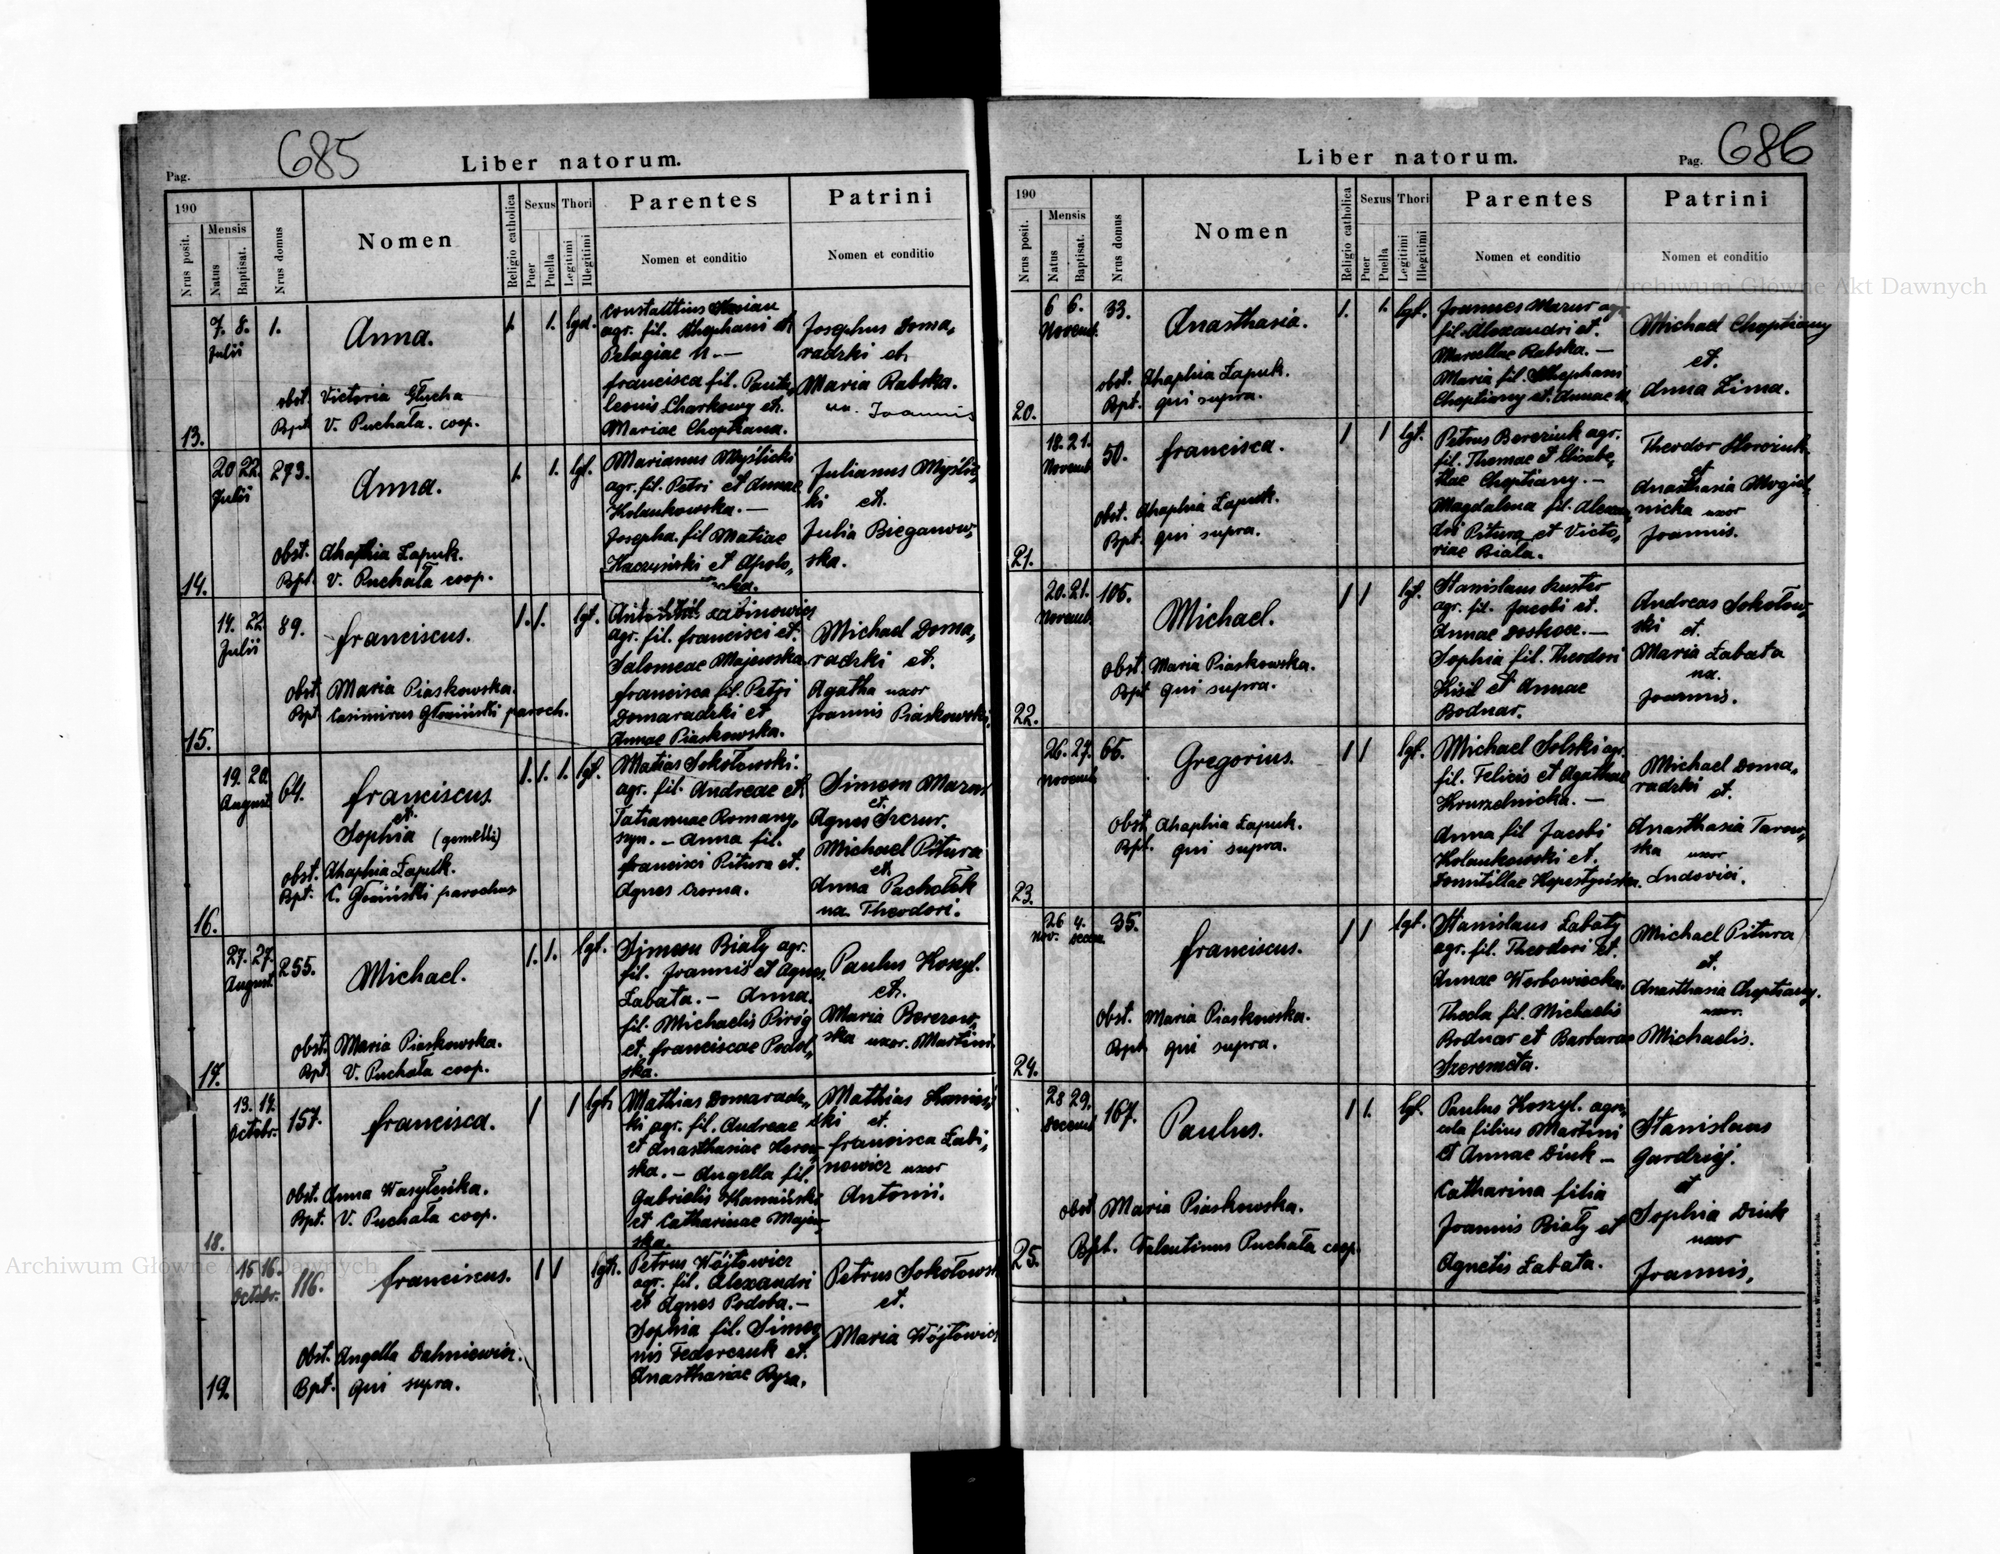 685
Liber natorum.
Pag.
190
Nrus posit.
Mensis
Natus
Baptisat.
Nrus domus
Nomen
Religio catholica
Sexus
Puer
Puella
Thori
Legitimi
Illegitimi
Parentes
Nomen et conditio
Patrini
Nomen et conditio
13.
7. 8.
Julii
1.
Anna.
obst. Victoria Głucha
Bpt. V. Puchała. coop.
1. 1. lgt.
agr. fil. Stephani et
Pelagiae N. —
francisca fil. Pante,
leonis Charkowy et.
Mariae Choptiana.
Josephus Doma,
radzki et.
Maria Rabska.
ux. Joannis
14.
20 22.
Julii
273.
Anna.
obst. Ahaphia Łapuk.
Bpt. V. Puchała coop.
1. 1. lgt.
Marianus Myślicki
agr. fil. Petri et Annae
Kolankowska. —
Josepha. fil Matiae
Kaczyński et Apolo,
Julianus Myślic,
ki et.
Julia Bieganow,
ska.
15.
14. 22.
Julii
89.
franciscus.
obst. Maria Piaskowska.
Bpt. Casimirus Głowiński paroch.
1. 1. lgt.
agr. fil. francisci et.
Salomeae Majewska
francisca fil. Petri
Domaradzki et
Annae Piaskowska.
Michael Doma,
radzki et.
Agatha uxor
Joannis Piaskowski.
16.
19. 20.
August.
64.
franciscus
et.
Sophia (gemelli)
obst. Ahaphia Łapuk.
Bpt. C. Głowiński parochus
1. 1. 1. lgt.
Matias Sokołowski.
agr. fil. Andreae et.
Tatiannae Romany,
szyn. — Anna fil.
francisci Pitura et.
Agnes Czorna.
Simeon Mazur
et.
Agnes Szczur.
Michael Pitura
et.
Anna Pachołek
ux. Theodori.
17.
27. 27.
August.
255.
Michael.
obst. Maria Piaskowska.
Bpt. V. Puchała coop.
1. 1. lgt.
Simeon Biały agr.
fil. Joannis et Agnes,
Łabata. — Anna.
fil. Michaelis Piróg
et. franciscae Podol,
ska.
Paulus Koszyl.
et.
Maria Berezow,
ska uxor. Martini.
18.
13. 14.
Octobr.
157.
francisca.
obst. Anna Wasyleńka.
Bpt. V. Puchała coop.
1 1 lgt.
Mathias Domaradz,
ki agr. fil. Andreae
et Anasthasiae
ska. — Angella fil.
Gabrielis Kamiński
et Catharinae Majew,
ska.
Mathias Kamiń,
ski et.
francisca Łabi,
nowicz uxor
Antonii.
19.
15 16.
Octobr.
116.
franciscus.
Obst. Angella Dahniewicz.
Bpt. qui supra.
1 1 lgt.
Petrus Wójtowicz
agr. fil. Alexandri
et Agnes Podoba. —
Sophia fil. Simeo
nis Fedorczuk et.
Anasthasiae Rysa.
Petrus Sokołowski
et.
Maria Wójtowicz
Liber natorum.
Pag. 686
190
Nrus posit.
Mensis
Natus
Baptisat.
Nrus domus
Nomen
Religio catholica
Sexus
Puer
Puella
Thori
Legitimi
Illegitimi
Parentes
Nomen et conditio
Patrini
Nomen et conditio
20.
6 6.
Novemb.
33.
Anasthasia.
obst. Ahaphia Łapuk.
Bpt. qui supra.
1. 1. lgt.
Joannes Mazur agr.
fil. Alexandri et.
Marcellae Rabska. —
Maria fil. Stephani
Choptiany et. Annae N.
Michael Choptiany
et.
Anna Zima.
21.
18. 21.
Novemb.
50.
francisca.
obst. Ahaphia Łapuk.
Bpt. qui supra.
1 1 lgt.
Petrus Bereziuk agr.
fil. Thomae et Elisabe,
thae Choptiany. —
Magdalena fil. Alexan,
dri Pitura et Victo,
riae Biała.
Theodor
et
Anasthasia Mogiel,
nicka uxor
Joannis.
22.
20. 21.
Novemb.
106.
Michael.
obst. Maria Piaskowska.
Bpt. qui supra.
1 1 lgt.
Stanislaus Kuster
agr. fil. Jacobi et.
Annae Doskocz. —
Sophia fil. Theodori
Kisil et Annae
Bodnar.
Andreas Sokołow,
ski et.
Maria Łabata
ux.
Joannis.
23.
26. 27.
Novemb.
66.
Gregorius.
obst. Ahaphia Łapuk.
Bpt. qui supra.
1 1 lgt.
Michael Solski agr.
fil. Felicis et Agathae
Kruszelnicka. —
Anna fil Jacobi
Kolankowski et.
Domitillae
Michael Doma,
radzki et.
Anasthasia Tarow,
ska uxor
Ludovici.
24.
26 4.
Nov. Decem.
35.
franciscus.
obst. Maria Piaskowska.
Bpt. qui supra.
1 1 lgt.
Stanislaus Łabaty
agr. fil. Theodori et.
Annae Werbowiecka.
Thecla fil. Michaelis
Bodnar et Barbarae
Szeremeta.
Michael Pitura
et.
Anasthasia Choptiany.
uxor.
Michaelis.
25.
28 29.
Decemb.
167.
Paulus.
obst. Maria Piaskowska.
Bpt. Valentinus Puchała coop.
1 1. lgt.
Paulus Koszyl. agri,
cola filius Martini
et Annae Diuk —
Catharina filia
Joannis Biały et
Agnetis Łabata.
Stanislaus
Gardziej.
et
Sophia Diuk
uxor
Joannis.
Archiwum Główne Akt Dawnych
Archiwum Główne Akt Dawnych